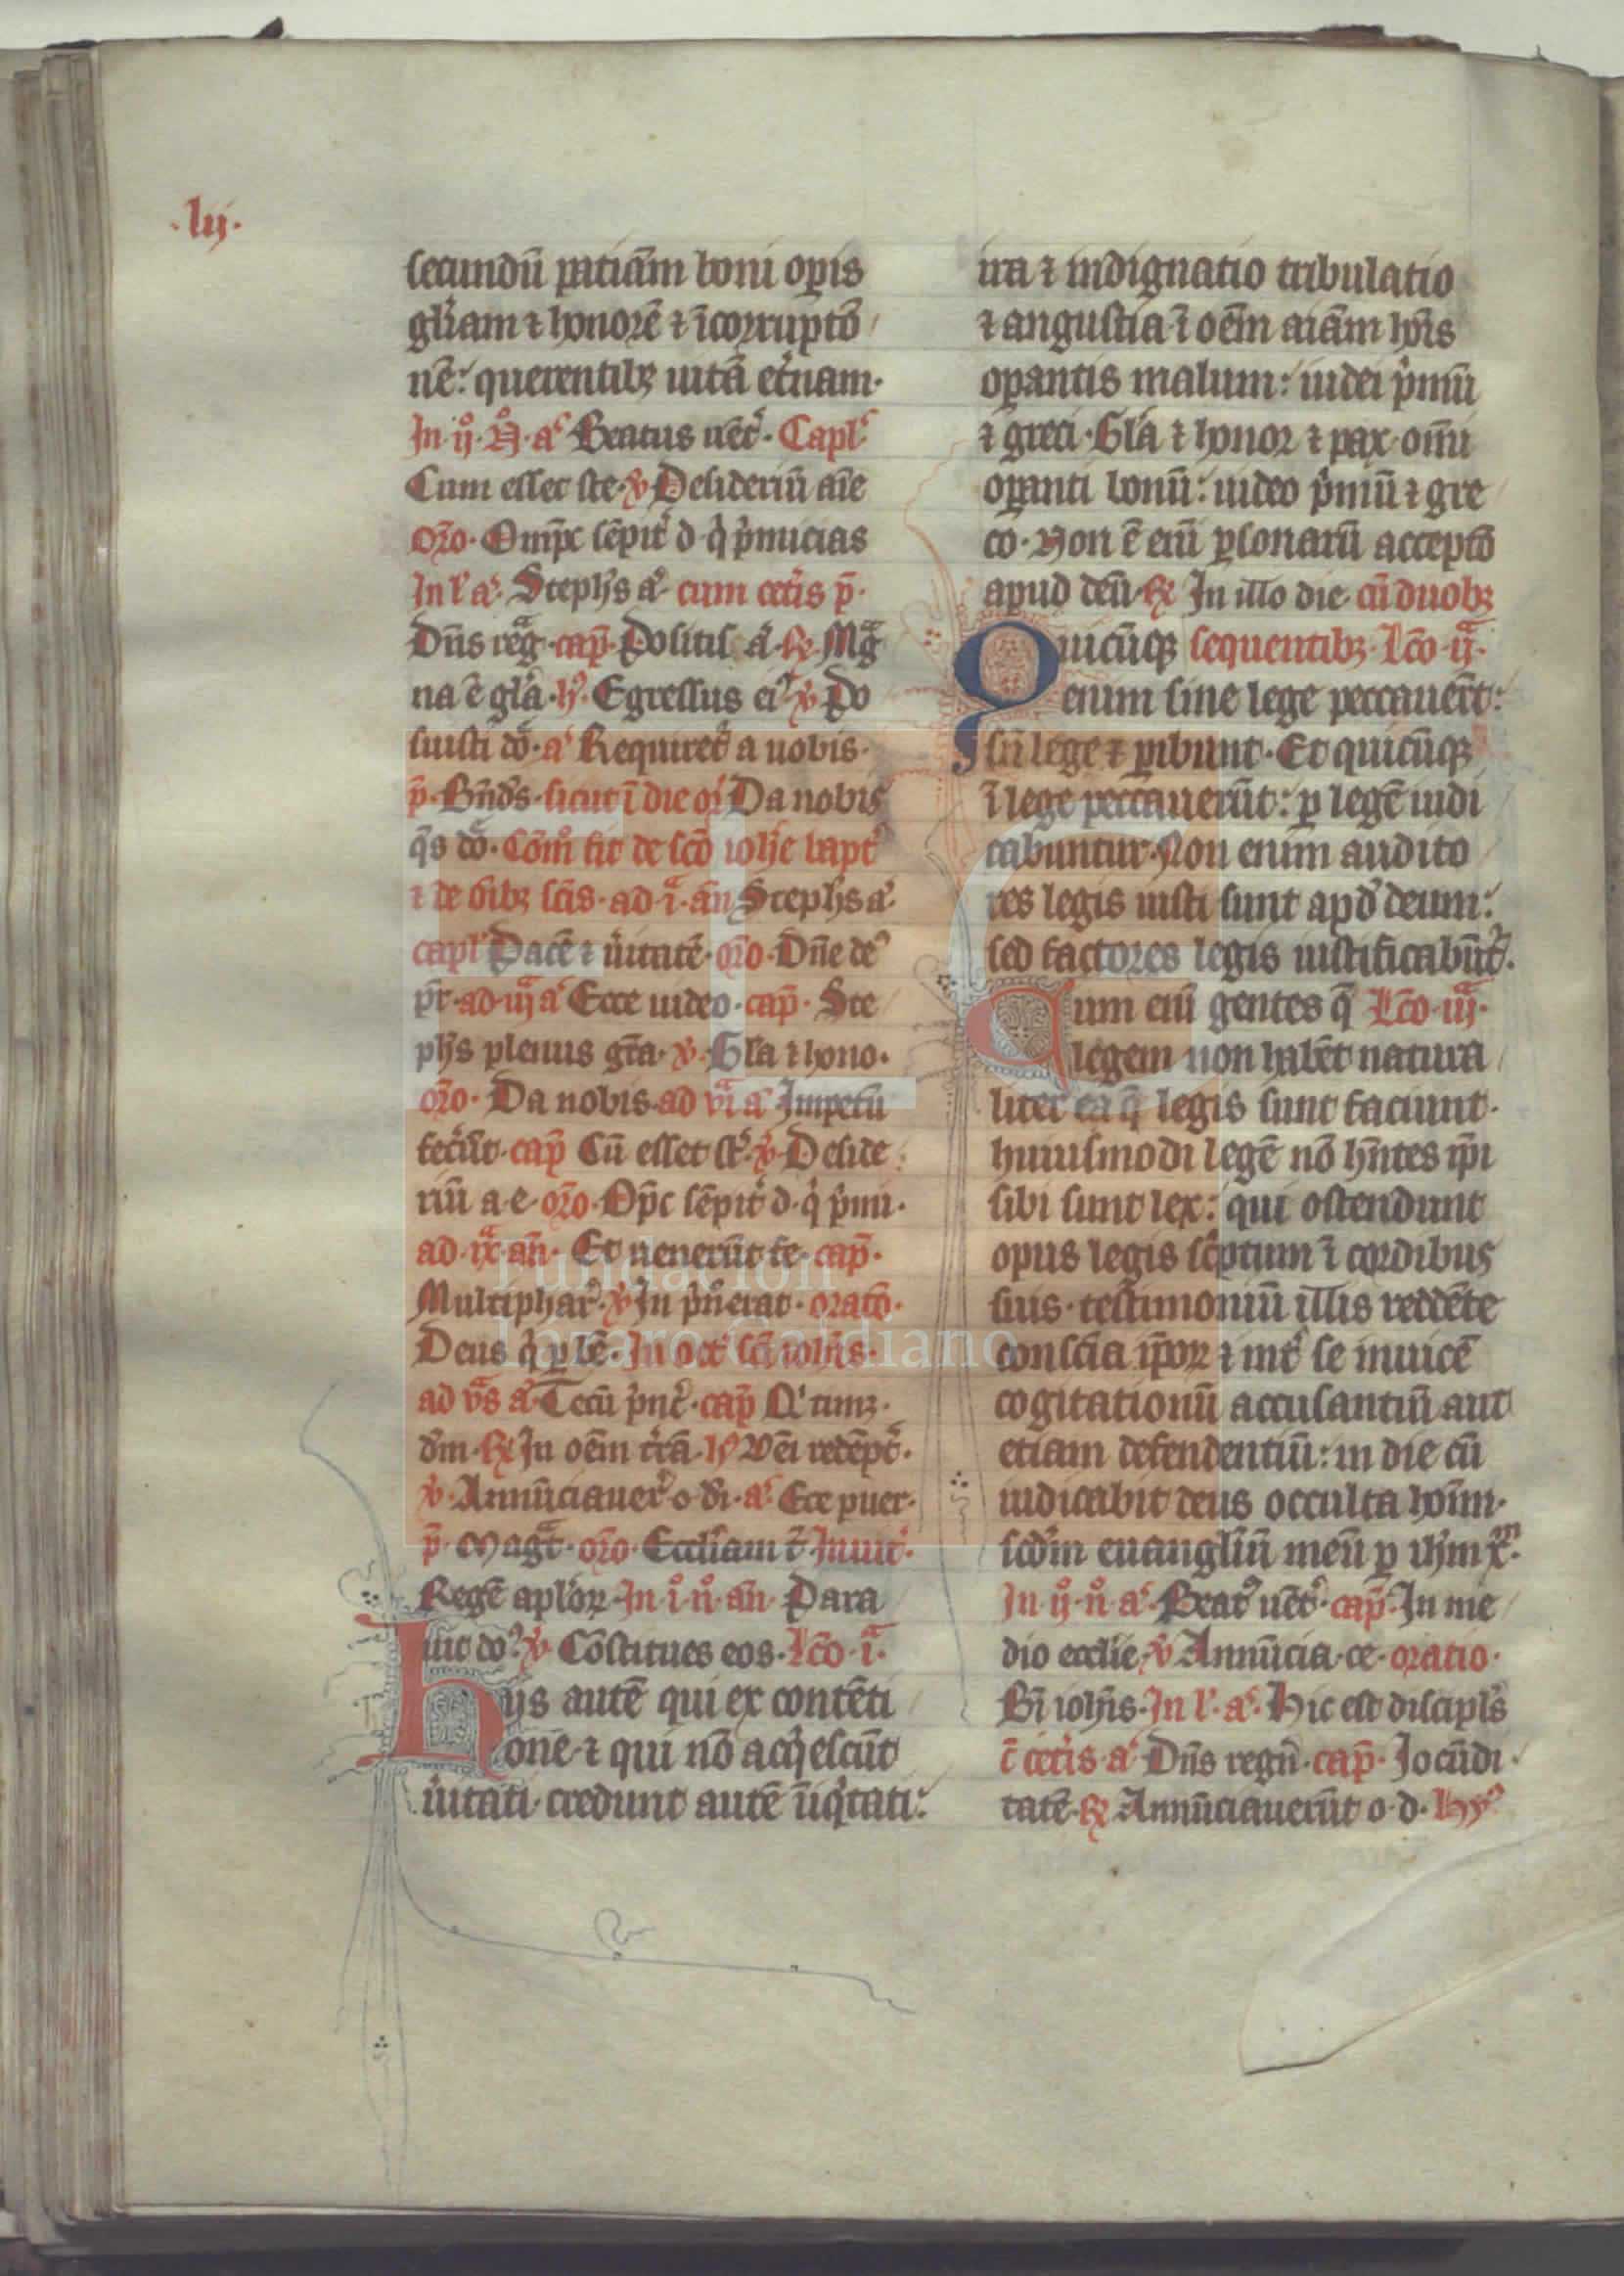 ·lij·
secundū patiām boni opis
glīam ⁊ honorē ⁊ īcorruptō
nē: querentibꝫ uitā et'nam·
In ij N a Beatus uēt· Capl'
Cum esset ste ℣ Desideriū aīe
Oro· Omps sēpit' d q' p'micias
In l' a Stephs a' cum cet'is p̄
Dn̄s reg· cap̄ Positis a ℞ Mag
na ē gl'a h' Egressus ei' ℣ Po
suisti dō a Requiret' a nobis·
p̄ Bn̄ds sicut ī die q Da nobis
q̄s dō· Com fit de scō iohe bapt'
⁊ de oībꝫ scīs· ad i an Stephs a'
capl' Pacē ⁊ u'itatē oro Dn̄e de'
pr ad iij a Ecce uideo cap̄ Ste
phs plenus gr̄a ℣ Gl'a ⁊ hono·
oro· Da nobis ad vi a Impetū
fec'ūt· cap̄ Cū esset st' ℣ Deside
riū a e oro· Op̄s sēpit' d q' p'mi·
ad ix an Et uenerūt fe cap̄·
Multiphar' ℣ In p'n'erat· oratō·
Deus q' p be In oct' scī iohīs·
ad vs a Tecū p'nc' cap̄ Q' tum
dm ℞ In oēm t'rā h' Vēi redēpt'·
℣ Annūciauer' o d'i a' Ecce puer·
p̄ Magt oro Eccl'iam t' Inuit'·
Regē apl'oꝝ In i n an Para
tur do' ℣ Cōstitues eos· Lc̄o i
Hijs autē qui ex contēti
one ⁊ qui nō acq'escūt
u'itati credunt autē īiq'tati:
ira ⁊ indignatio tribulatio
⁊ angustia ī oēm aīam hoīs
opantis malum: iudei p'mū
⁊ greci· Gl'a ⁊ honor ⁊ pax omī
opanti bonū: iudeo p'mū ⁊ gre
co· Non ē enī psonarū acceptō
apud deū ℞ In illo die cū duobꝫ
Quicūqꝫ sequentibꝫ Lc̄o ij
enim sine lege peccauerūt:
sn̄ lege ⁊ pibunt· Et quicūqꝫ
ī lege peccauerūt: p legē iudi
cabuntur· Non enim audito
res legis iusti sunt apd' deum:
sed factores legis iustificabūt'·
Cum enī gentes q̄ Lc̄o iij
legem non habēt natura
liter ea q̄ legis sunt faciunt·
huiusmodi legē nō hn̄tes ip̄i
sibi sunt lex: qui ostendunt
opus legis sc'ptum ī cordibus
suis· testimoniū illis reddēte
consciā ip̄oꝝ ⁊ int' se inuicē
cogitationū accusantiū aut
etiam defendentiū: in die cū
iudicabit deus occulta hoīm·
scdm euangliū meū p ihm xm·
In ij n a Beat' uēt' cap̄ In me
dio ecclīe ℣ Annūcia ce oratio
Bī iohīs· In l' a Hic est discipls
c̄ cet'is a Dn̄s regn̄ cap̄ Jocūdi
tatē ℞ Annūciauerūt o d hy'